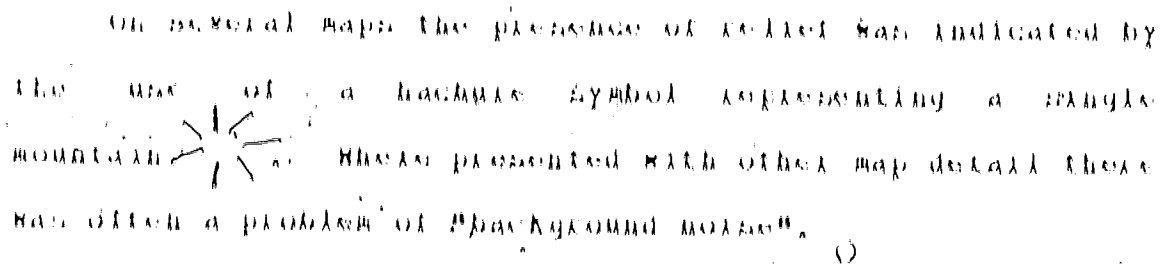 On several maps the presence of relief was indicated by
the use of a hachure symbol representing a single
mountain . Where presented with other map detail there
was often a problem of "background noise".